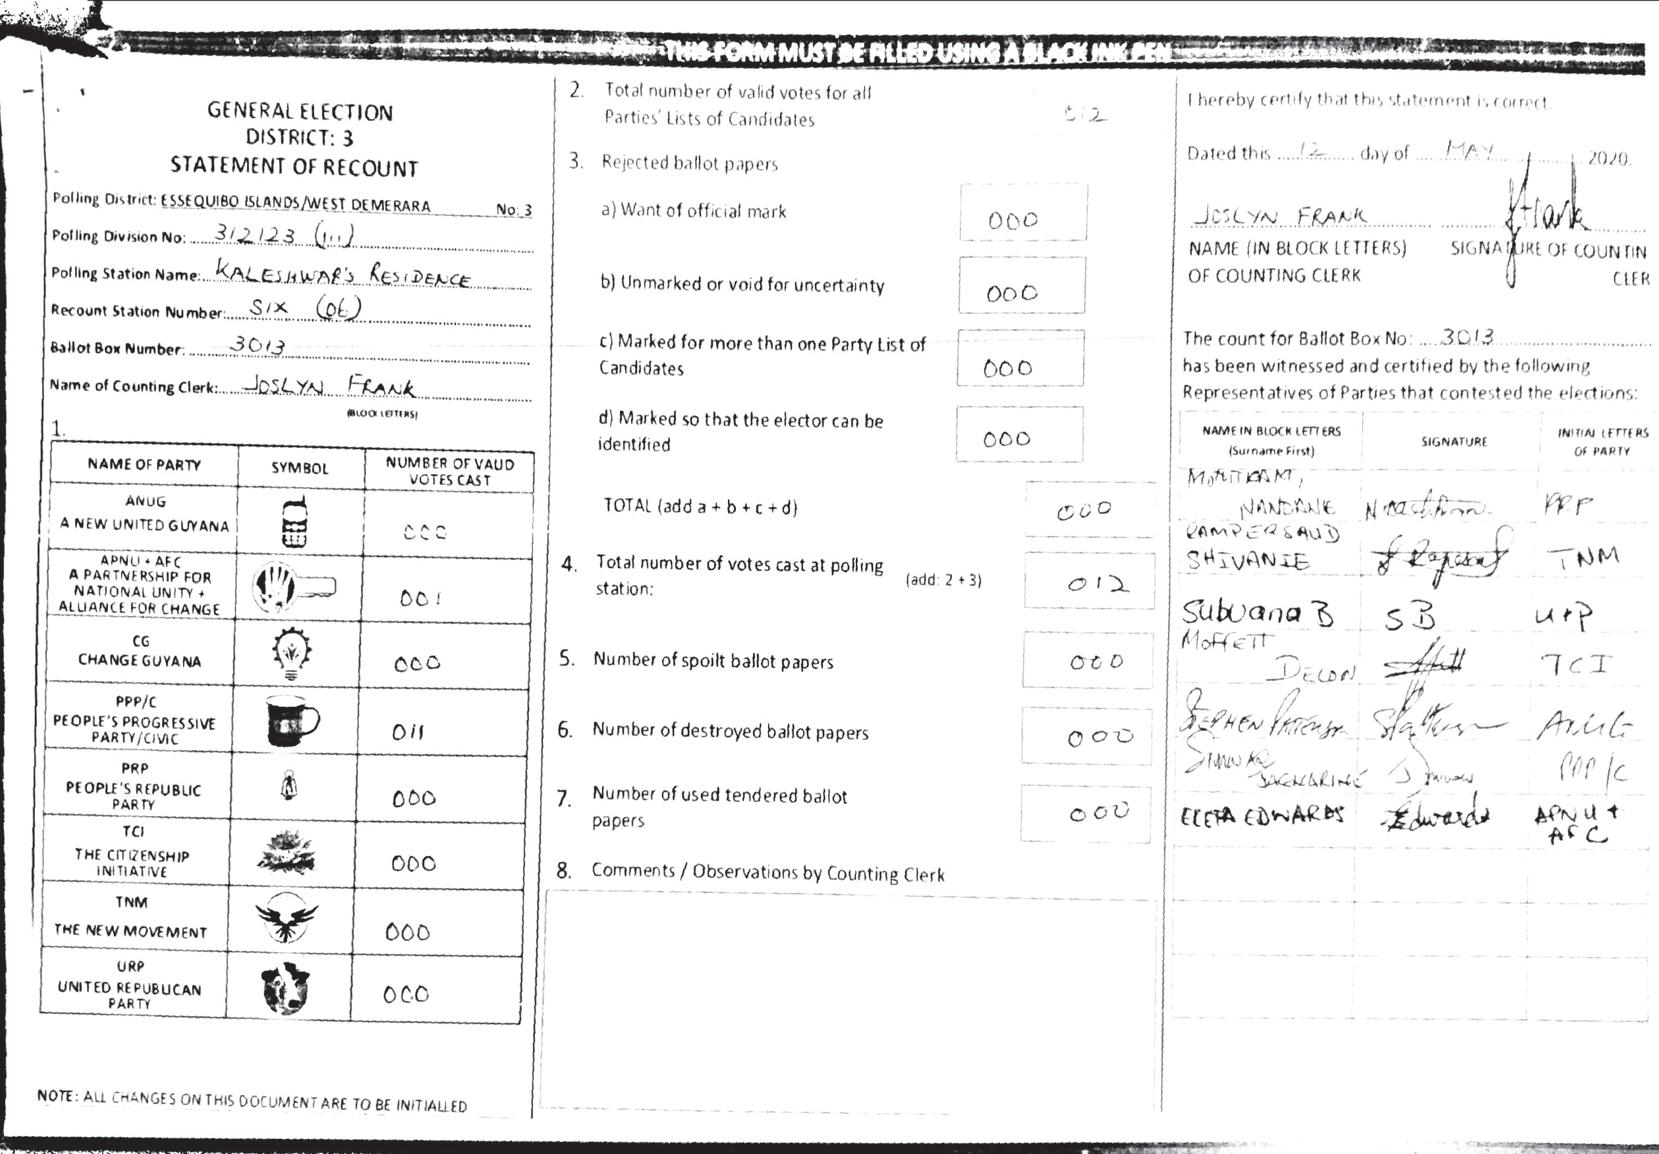 THIS FORM MUST BE FILLED USING A BLACK INK PEN
GENERAL ELECTION
DISTRICT: 3
STATEMENT OF RECOUNT
Polling District: ESSEQUIBO ISLANDS/WEST DEMERARA No: 3
Polling Division No: 312123 (iii)
Polling Station Name: KALESHWAR'S RESIDENCE
Recount Station Number: SIX (06)
Ballot Box Number: 3013
Name of Counting Clerk: JOSLYN FRANK
(BLOCK LETTERS)
1.
NAME OF PARTY SYMBOL NUMBER OF VALID
VOTES CAST
ANUG
A NEW UNITED GUYANA 000
APNU + AFC
A PARTNERSHIP FOR
NATIONAL UNITY +
ALLIANCE FOR CHANGE 001
CG
CHANGE GUYANA 000
PPP/C
PEOPLE'S PROGRESSIVE
PARTY/CIVIC 011
PRP
PEOPLE'S REPUBLIC
PARTY 000
TCI
THE CITIZENSHIP
INITIATIVE 000
TNM
THE NEW MOVEMENT 000
URP
UNITED REPUBLICAN
PARTY 000
NOTE: ALL CHANGES ON THIS DOCUMENT ARE TO BE INITIALLED
2. Total number of valid votes for all
Parties' Lists of Candidates 012
3. Rejected ballot papers
a) Want of official mark 000
b) Unmarked or void for uncertainty 000
c) Marked for more than one Party List of
Candidates 000
d) Marked so that the elector can be
identified 000
TOTAL (add a + b + c + d) 000
4. Total number of votes cast at polling
station: (add: 2 + 3) 012
5. Number of spoilt ballot papers 000
6. Number of destroyed ballot papers 000
7. Number of used tendered ballot
papers 000
8. Comments / Observations by Counting Clerk
I hereby certify that this statement is correct.
Dated this 12 day of MAY 2020.
JOSLYN FRANK Frank
NAME (IN BLOCK LETTERS) SIGNATURE OF COUNTIN
OF COUNTING CLERK CLER
The count for Ballot Box No: 3013
has been witnessed and certified by the following
Representatives of Parties that contested the elections:
NAME IN BLOCK LETTERS
(Surname First) SIGNATURE INITIAL LETTERS
OF PARTY
NANDANIE PPP
RAMPERSAUD
SHIVANIE TNM
Subvana B SB U+P
MOFFETT
DELON TCI
STEPHEN PATERSON ANUG
JAGNARINE PPP/C
ELETA EDWARDS Edwards APNU +
AFC